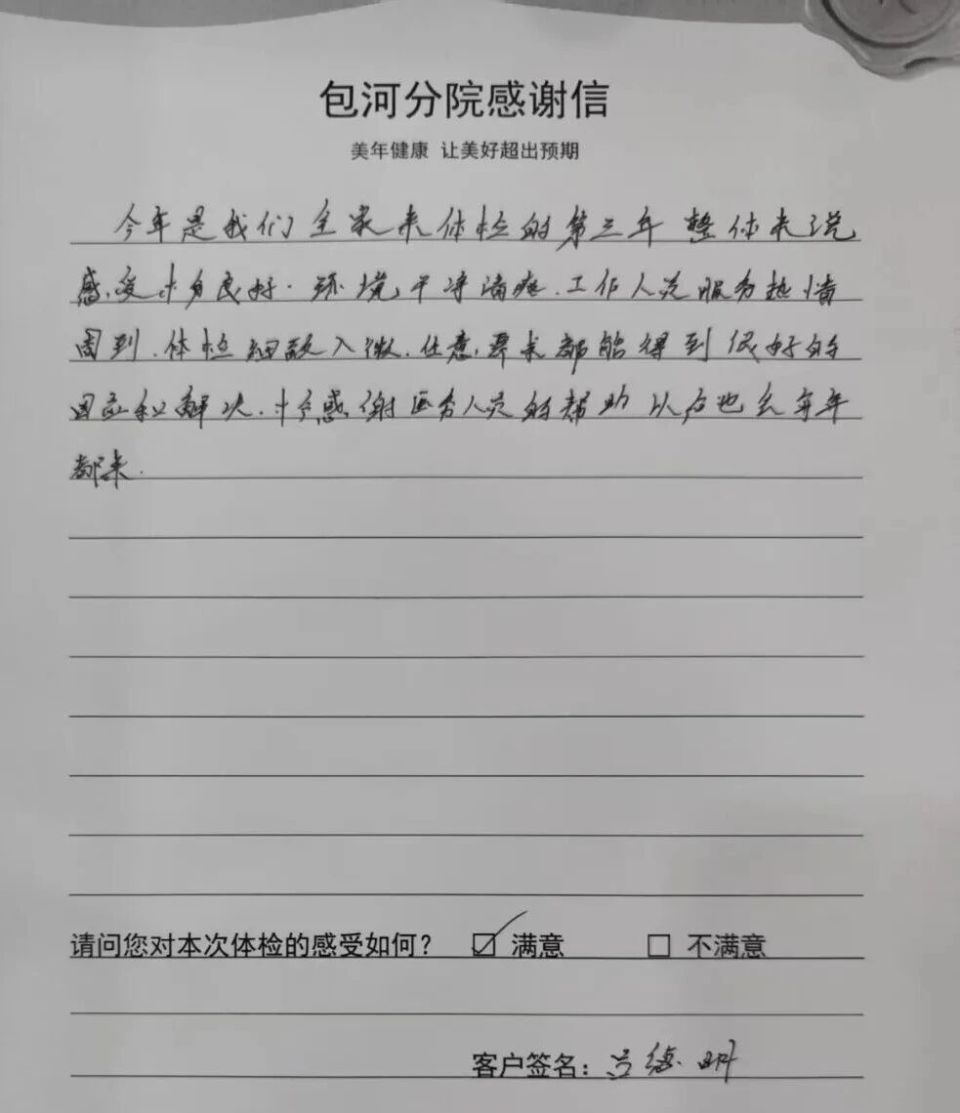 包河分院感谢信
美年健康 让美好超出预期
今年是我们全家来体检的第三年 整体来说
感受十分良好.环境干净清爽.工作人员服务热情
周到.体检细致入微.任意要求都能得到很好的
回应和解决.十分感谢医务人员的帮助 以后也会年年
都来.
请问您对本次体检的感受如何? ☑ 满意 □ 不满意
客户签名:吕德明